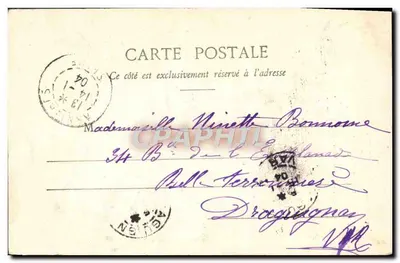 CARTE POSTALE
Ce côté est exclusivement réservé à l'adresse
Mademoiselle Ninette Bonnome
34 Bd de l'Esplanade
Belle
Draguignan
Var
VAR
04